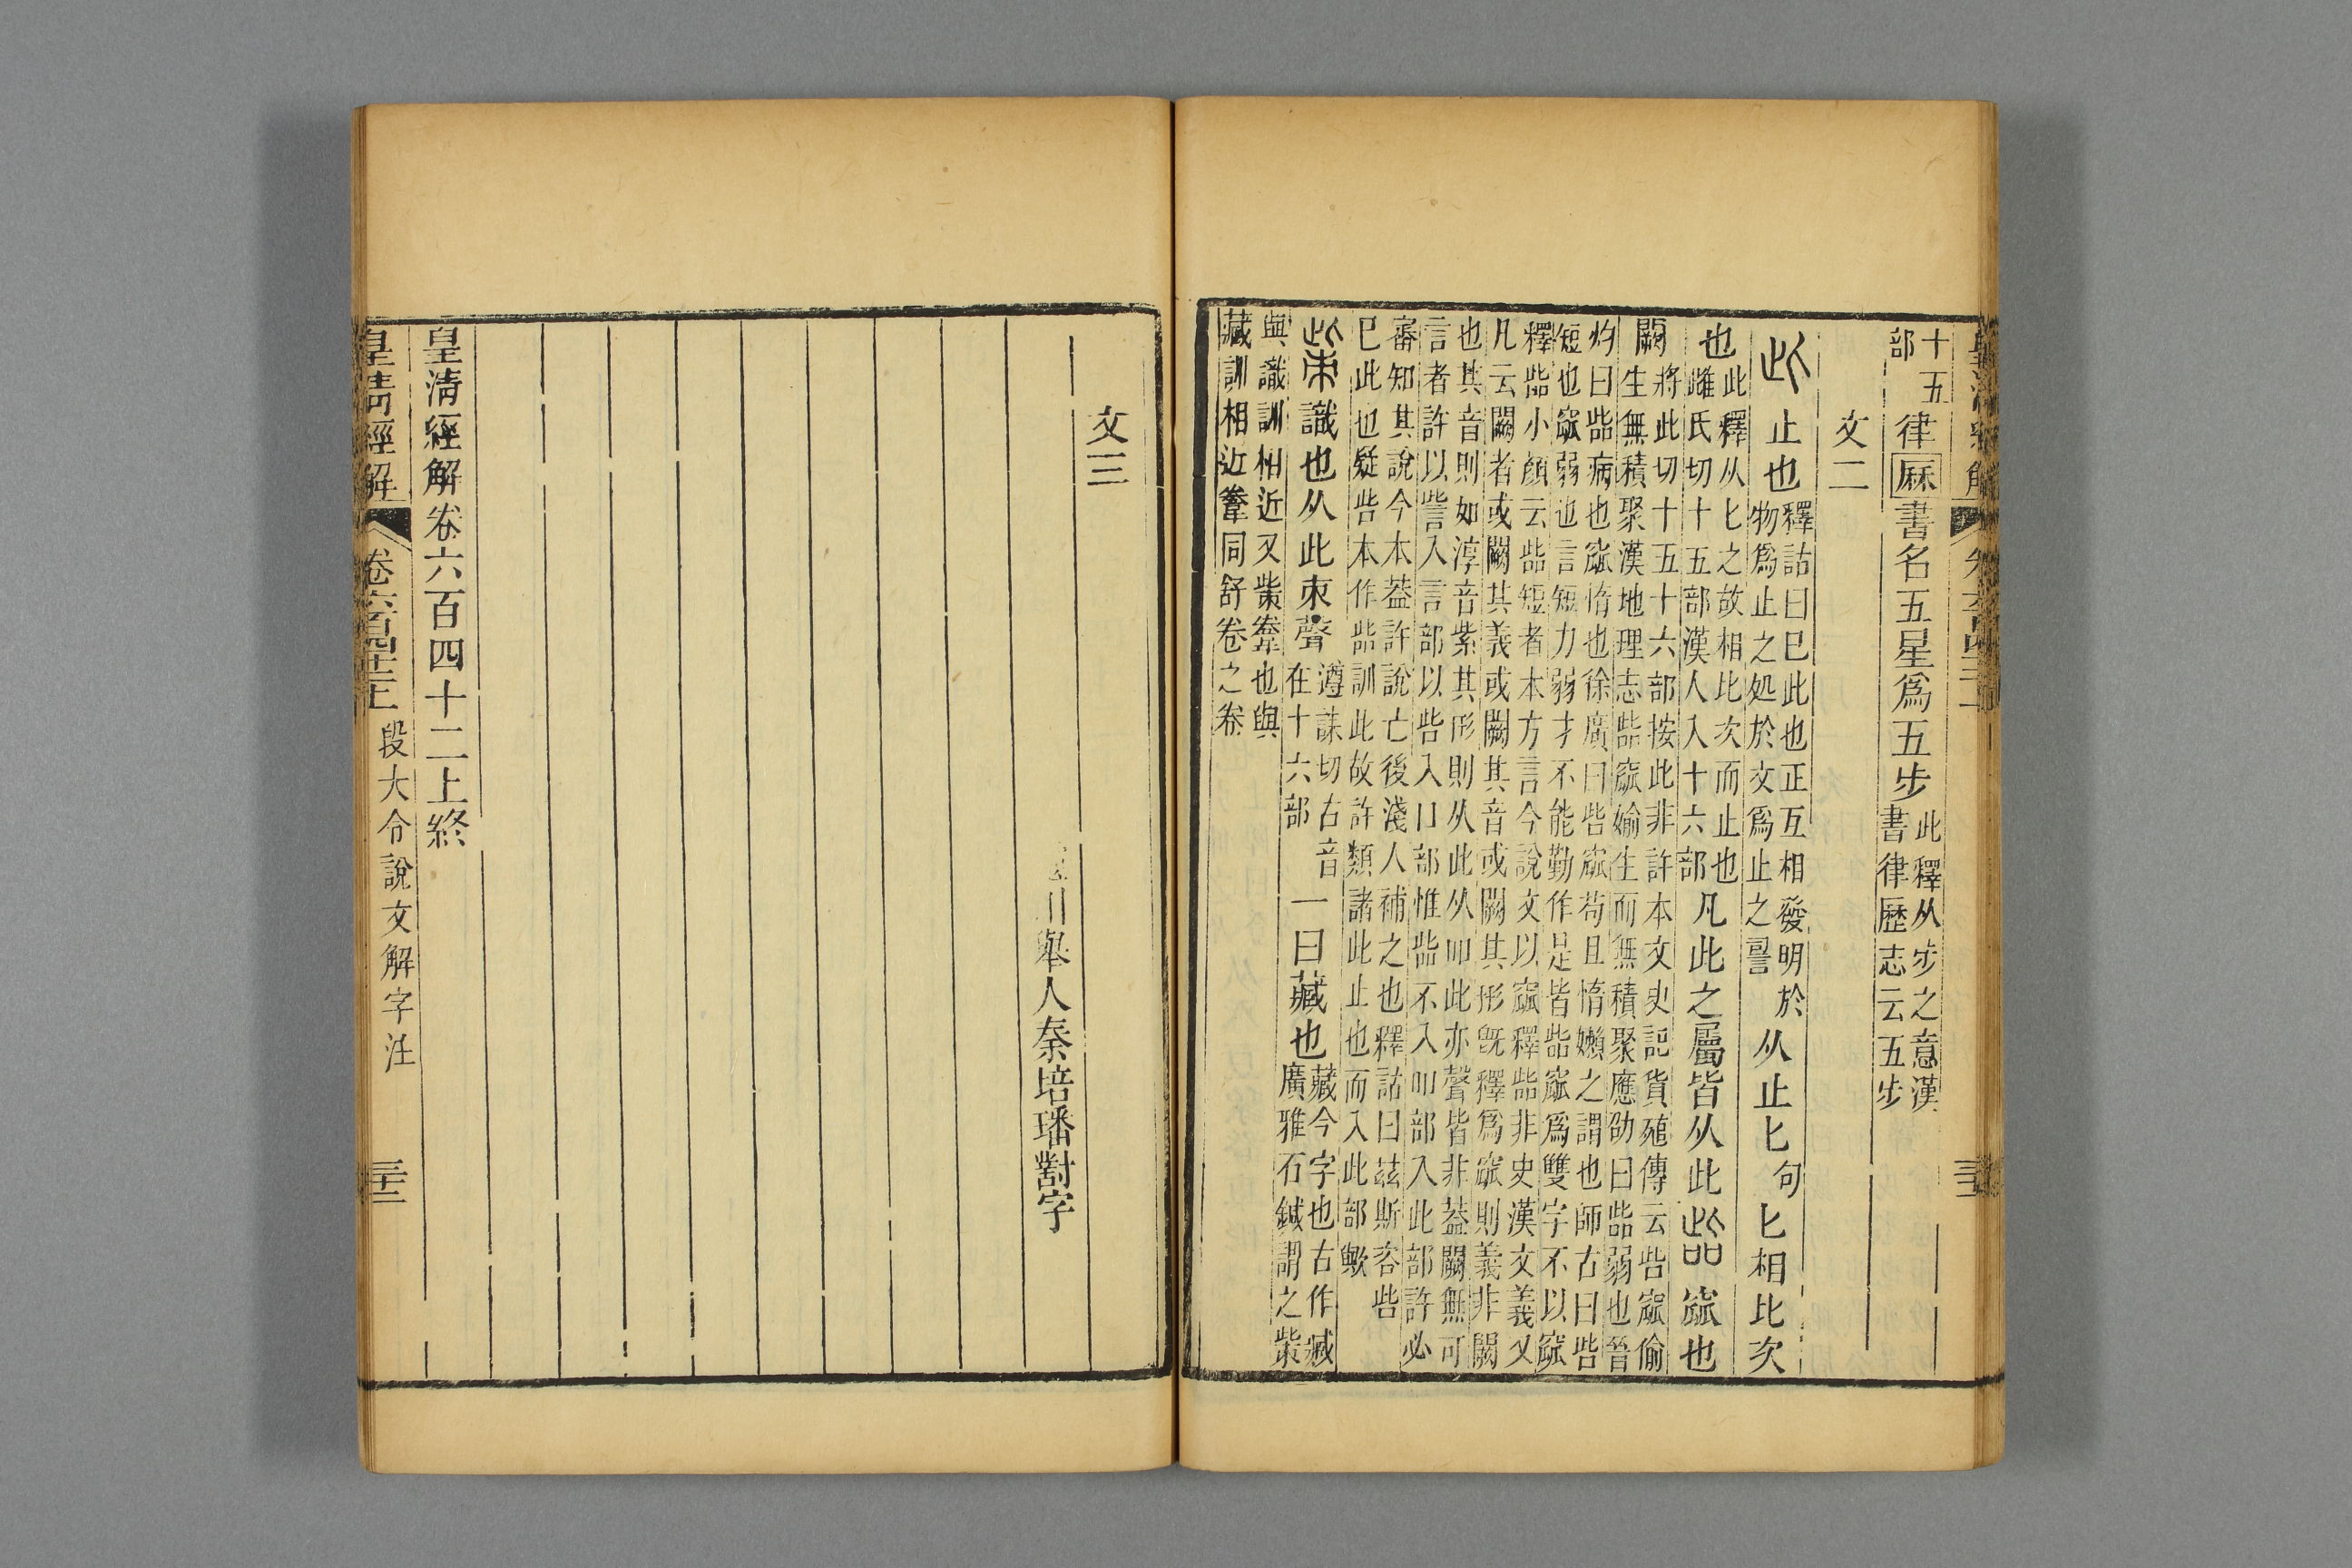 皇清經解
十五
部
律厤書名五星爲五步
此釋从步之意漢
書律歷志云五步
文二
止也
釋詁曰已此也正互相發明於
物爲止之処於文爲止之䛐
从止匕句匕相比次
也
此釋从匕之故相比次而止也
雌氏切十五部漢人入十六部
凡此之屬皆从此
窳也
闕
將此切十五十六部按此非許本文史記貨殖傳云呰窳偷
生無積聚漢地理志啙窳媮生而無積聚應劭曰啙弱也晉
灼曰啙病也窳惰也徐廣曰呰窳苟且惰嬾之謂也師古曰呰
短也窳弱也言短力弱才不能勤作是皆啙窳爲雙字不以窳
釋啙小顏云啙短者本方言今說文以窳釋啙非史漢文義又
凡云闕者或闕其義或闕其音或闕其形旣釋爲窳則義非闕
也其音則如淳音紫其形則从此从吅此亦聲皆非葢闕無可
言者許以訾入言部以呰入口部惟啙不入吅部入此部許必
審知其說今本葢許說亡後淺人補之也釋詁曰兹斯咨呰
已此也疑呰本作啙訓此故許類諸此止也而入此部歟
識也从此朿聲
遵誄切古音
在十六部
一曰藏也
藏今字也古作臧
廣雅石鍼謂之㭰
與識訓相近又㭰㢧也與
藏訓相近韏同舒卷之卷
文三
川舉人秦培璠對字
皇清經解卷六百四十二上終
皇清經解
卷六百四十二上
段大令說文解字注
三十三